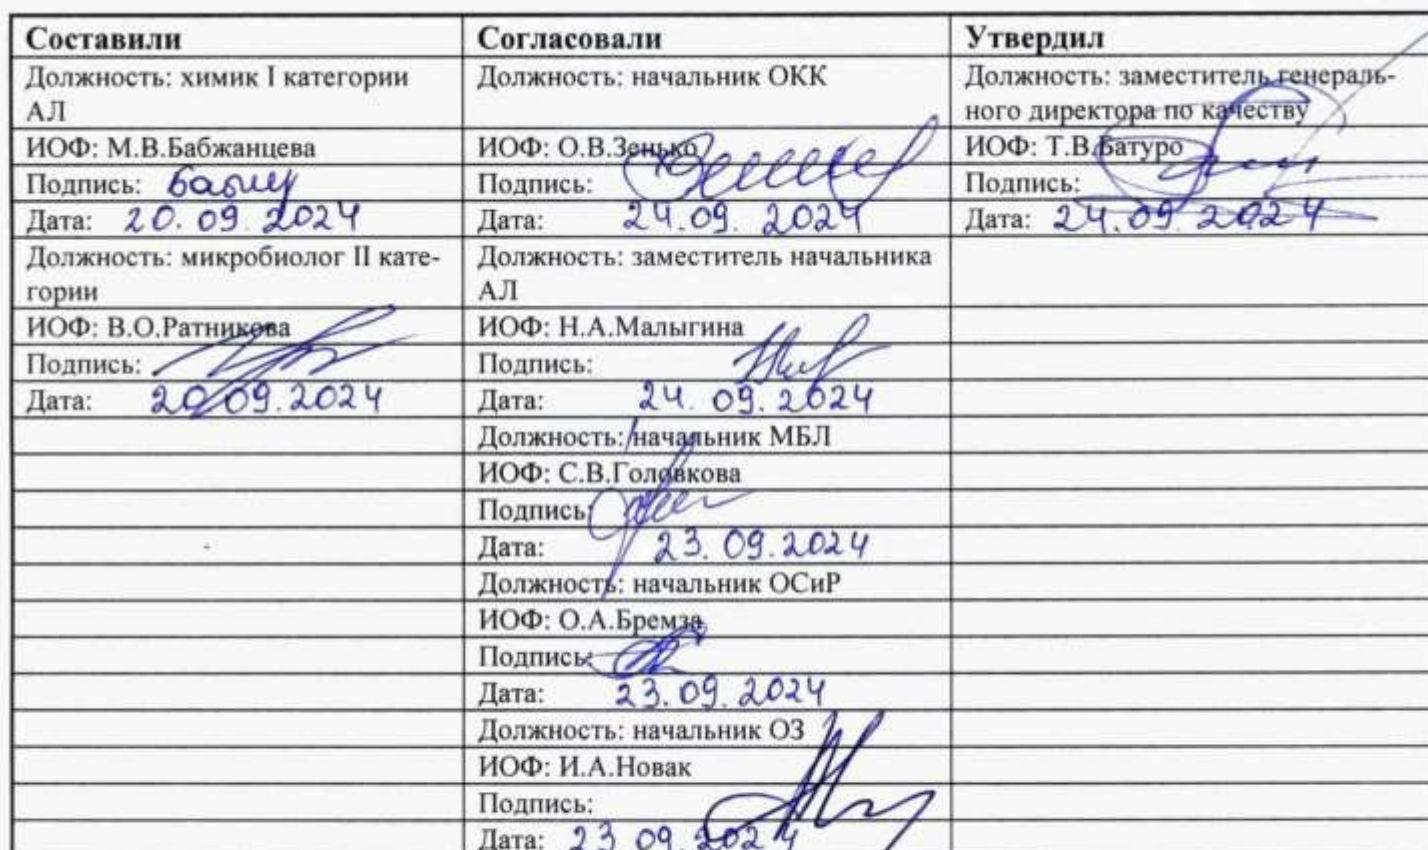 Составили Согласовали Утвердил
Должность: химик I категории Должность: начальник ОКК Должность: заместитель генераль-
АЛ ного директора по качеству
ИОФ: М.В.Бабжанцева ИОФ: О.В.Зенько ИОФ: Т.В.Батуро
Подпись: Подпись: Подпись:
Дата: 20.09.2024 Дата: 24.09.2024 Дата: 24.09.2024
Должность: микробиолог II кате- Должность: заместитель начальника
гории АЛ
ИОФ: В.О.Ратникова ИОФ: Н.А.Малыгина
Подпись: Подпись:
Дата: 20.09.2024 Дата: 24.09.2024
Должность: начальник МБЛ
ИОФ: С.В.Головкова
Подпись:
Дата: 23.09.2024
Должность: начальник ОСиР
ИОФ: О.А.Бремза
Подпись:
Дата: 23.09.2024
Должность: начальник ОЗ
ИОФ: И.А.Новак
Подпись:
Дата: 23.09.2024